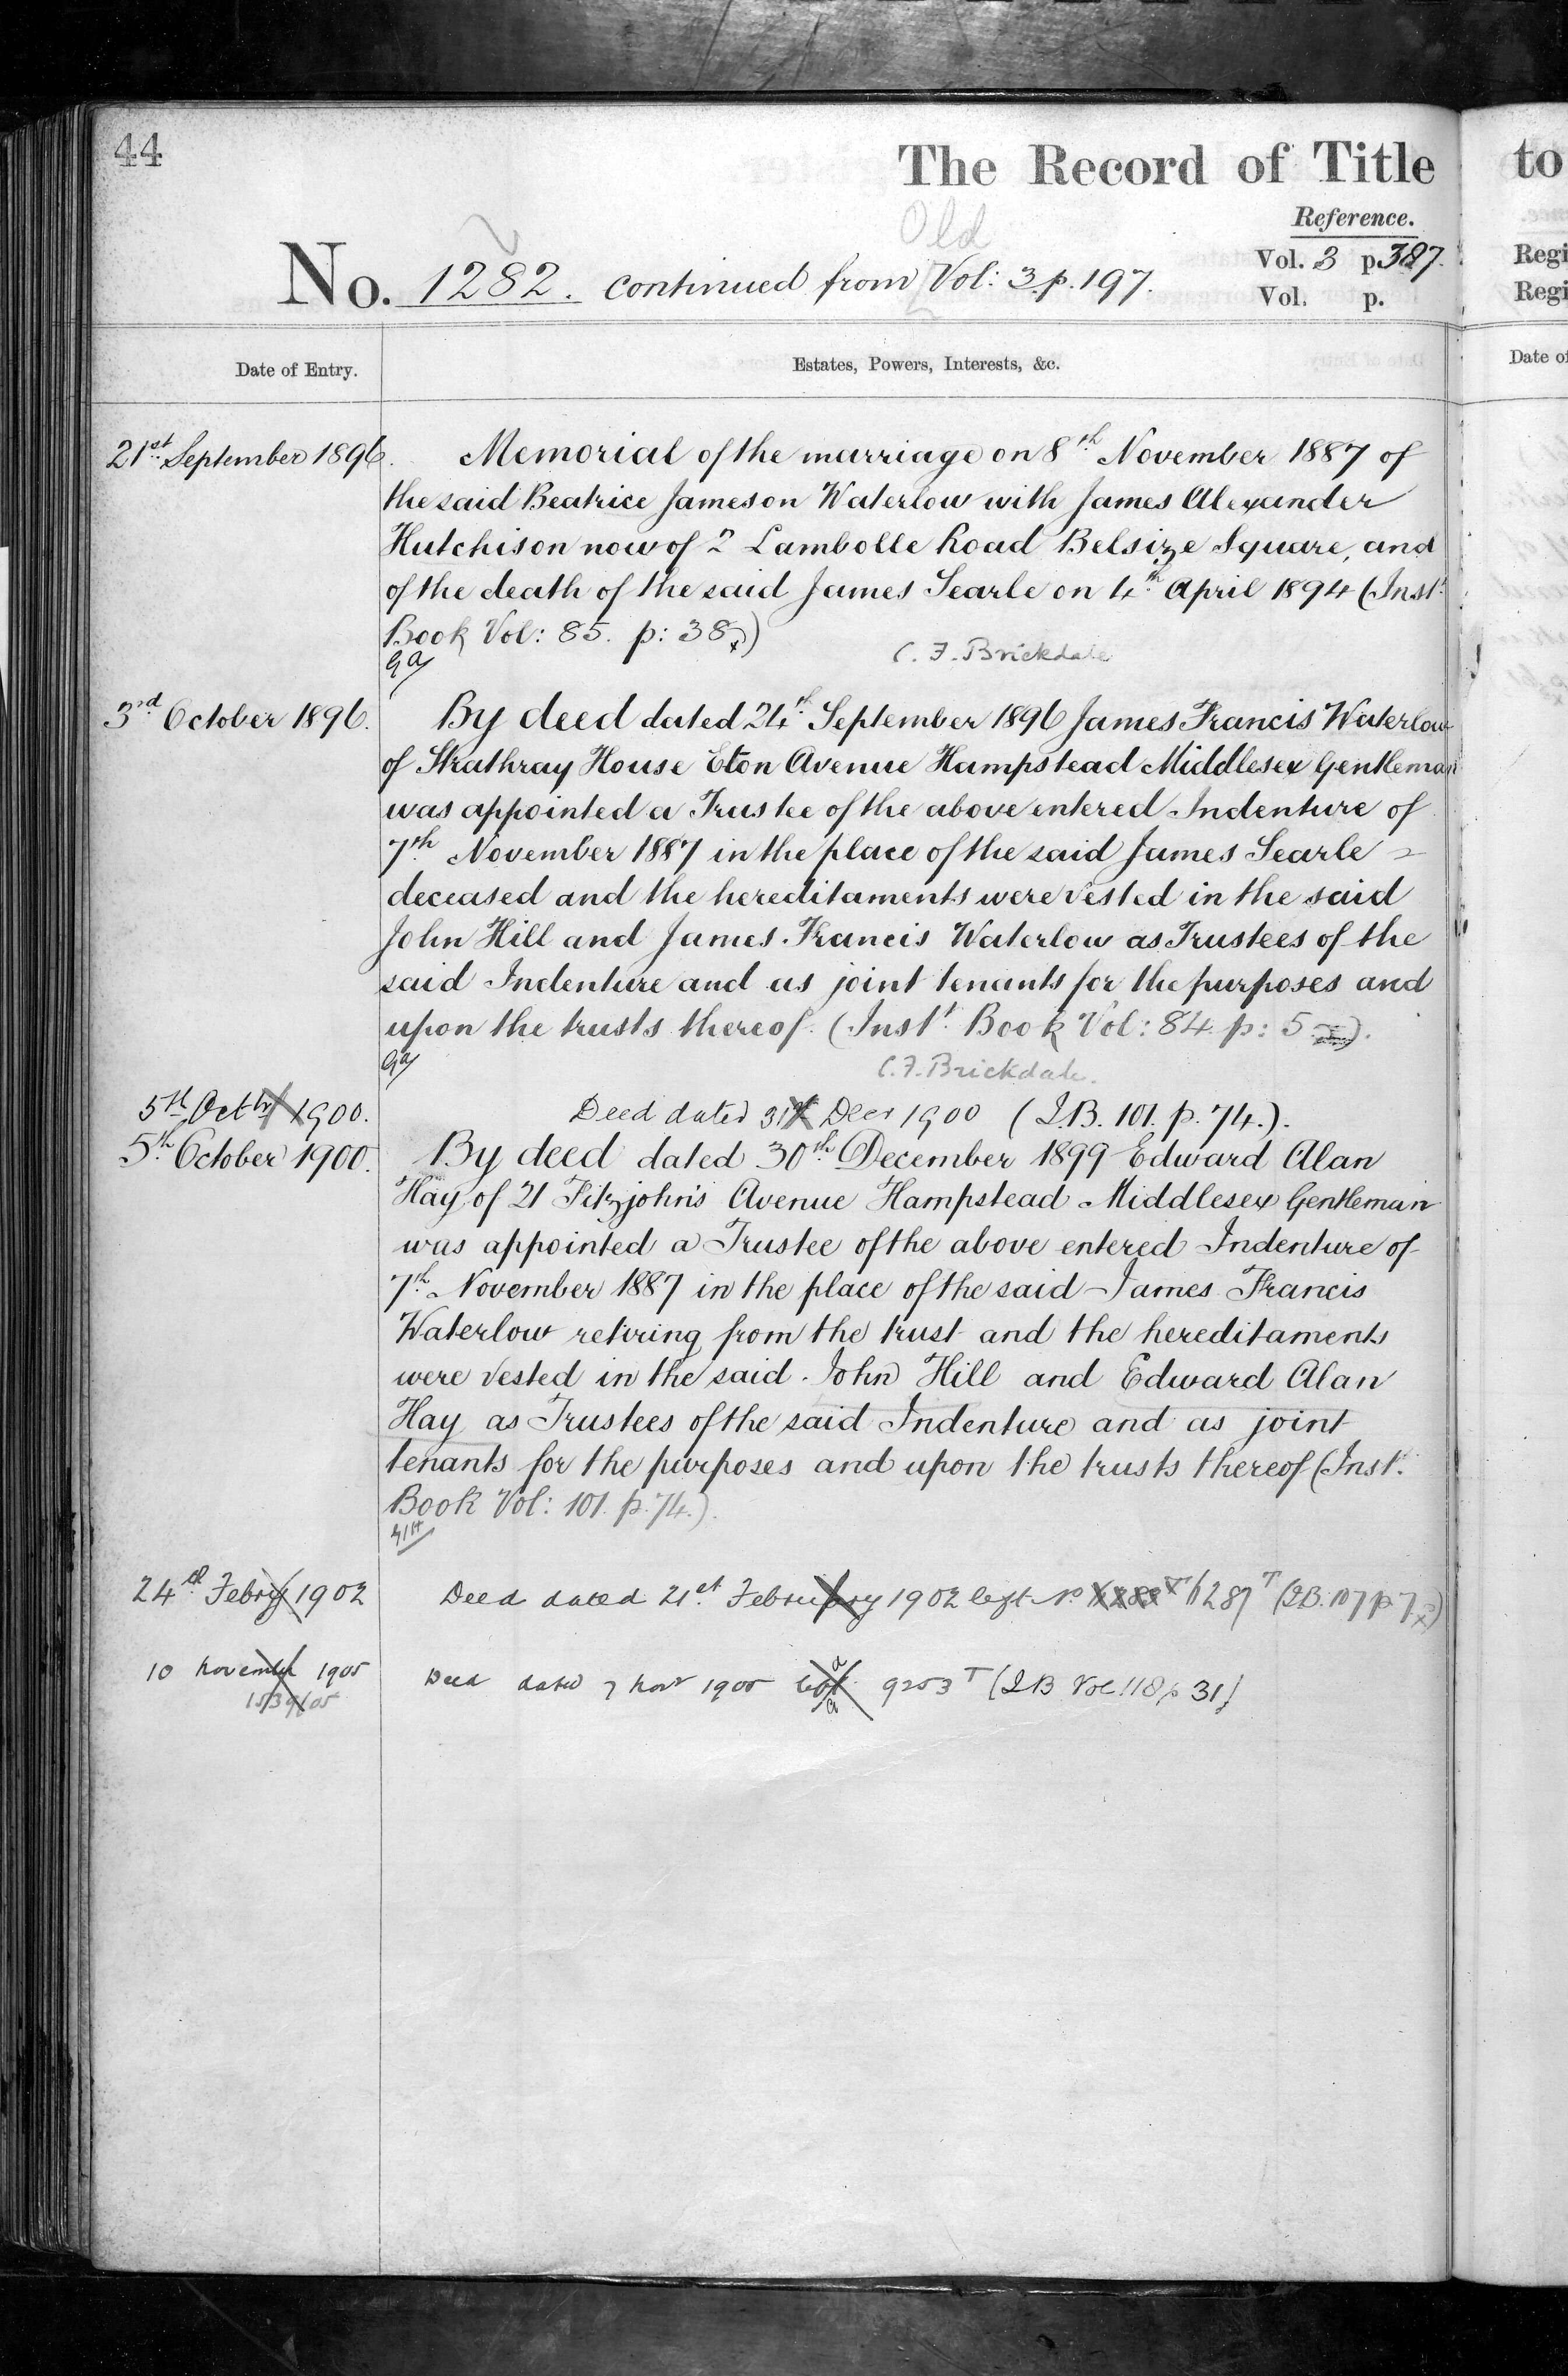 44
The Record of Title
to
Old
Reference.
No. 1282. continued from Vol: 3. p. 197.
Vol. 3 p. 387.
Vol. p.
Regi
Regi
Date of Entry.
Estates, Powers, Interests, &c.
Date of
21st September 1896.
Memorial of the marriage on 8th November 1887 of
the said Beatrice Jameson Waterlow with James Alexander
Hutchison now of 2 Lambolle Road Belsize Square, and
of the death of the said James Searle on 4th April 1894 (Inst.
Book Vol: 85. p: 38)
C. F. Brickdale
3rd October 1896.
By deed dated 24th September 1896 James Francis Waterlow
of Strathray House Eton Avenue Hampstead Middlesex Gentleman
was appointed a Trustee of the above entered Indenture of
7th November 1887 in the place of the said James Searle
deceased and the hereditaments were vested in the said
John Hill and James Francis Waterlow as Trustees of the
said Indenture and as joint tenants for the purposes and
upon the trusts thereof. (Inst. Book Vol: 84. p: 5).
C. F. Brickdale.
5th Octbr 1900.
Deed dated 31st Decr 1900 (I.B. 101. p. 74.).
5th October 1900.
By deed dated 30th December 1899 Edward Alan
Hay of 21 Fitzjohn's Avenue Hampstead Middlesex Gentleman
was appointed a Trustee of the above entered Indenture of
7th November 1887 in the place of the said James Francis
Waterlow retiring from the trust and the hereditaments
were vested in the said John Hill and Edward Alan
Hay as Trustees of the said Indenture and as joint
tenants for the purposes and upon the trusts thereof (Inst.
Book Vol: 101. p. 74.).
24th Febry 1902
Deed dated 21st February 1902 left No 1287 T (I.B. 107 p. 7)
10 November 1905
Deed dated 7 Novr 1905 9253 T (I B Vol 118 p 31)
1539/05